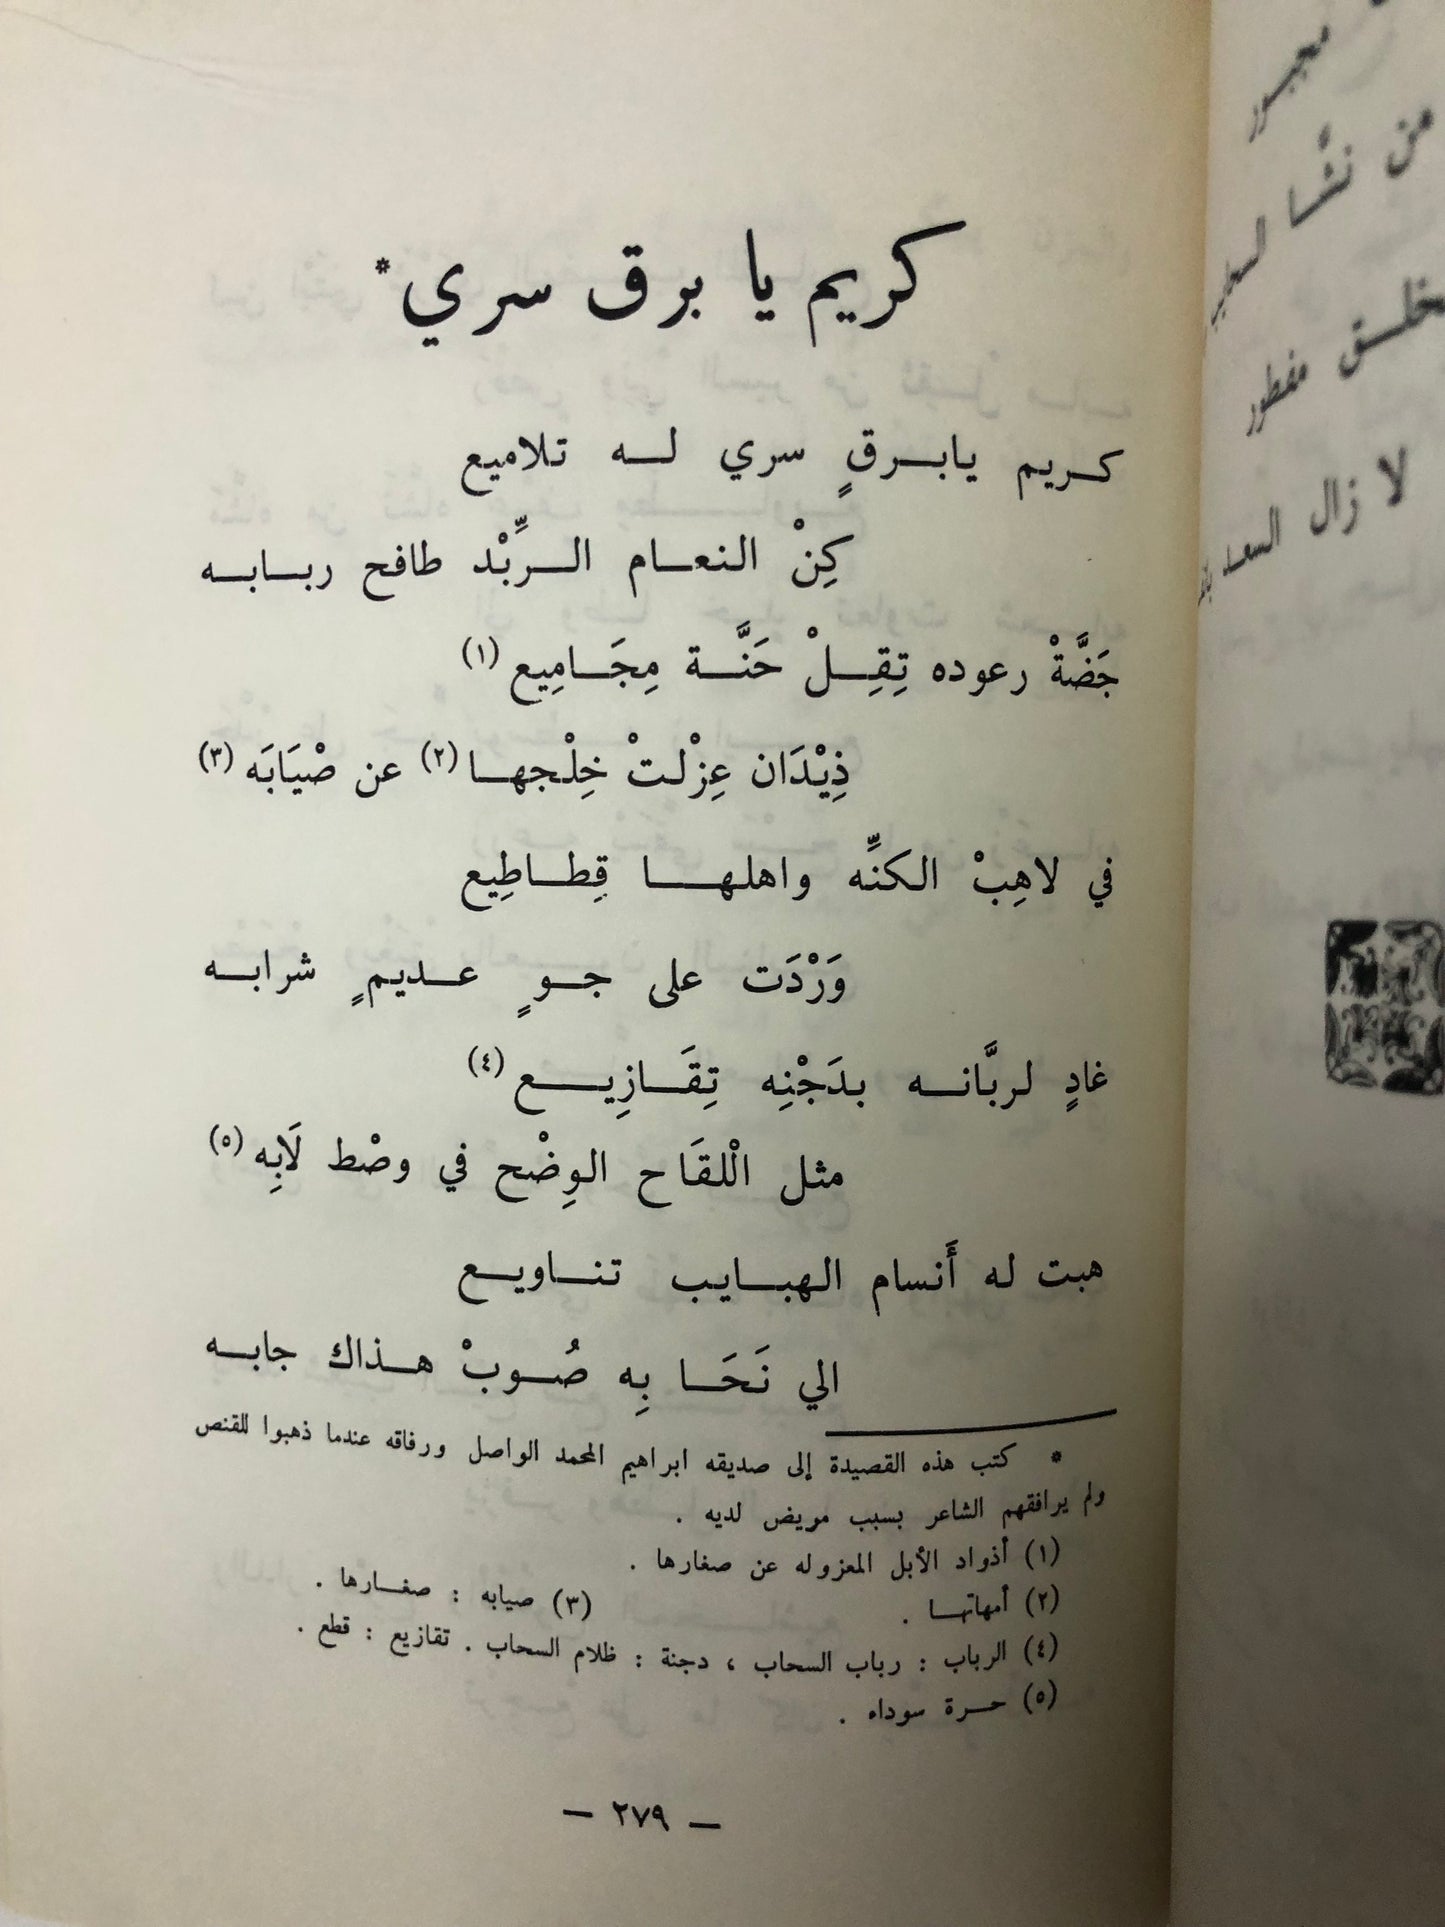 كريم يا برق سري *
كريم يابرقٍ سري له تلاميع
كِنْ النعام الربِّدْ طافح ربابه
جَضَّةْ رعوده تِقِلْ حَنَّة مِجَامِيع (١)
ذِيْدَان عِزْلتْ خِلْجها (٢) عن صْيَابَه (٣)
في لاهِبْ الكنِّه واهلها قِطاطِيع
وَرْدَت على جوٍ عديمٍ شرابه
غادٍ لربَّانه بدَجْنِه تِقَازِيع (٤)
مثل الْلقَاح الوِضْح في وصْط لَابِه (٥)
هبت له أَنسام الهبايب تناويع
الي نَحَا بِه صُوبْ هذاك جابه
* كتب هذه القصيدة إلى صديقه ابراهيم المحمد الواصل ورفاقه عندما ذهبوا للقنص
ولم يرافقهم الشاعر بسبب مويض لديه .
(١) أذواد الأبل المعزوله عن صغارها .
(٢) أمهاتها . (٣) صيابه : صغارها .
(٤) الرباب : رباب السحاب ، دجنة : ظلام السحاب . تقازيع : قطع .
(٥) حرة سوداء .
— ٢٧٩ —
من نشَّا
مفطور
لا زال